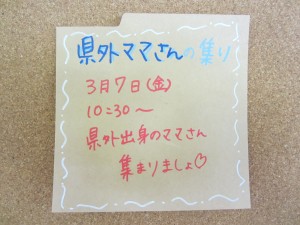 県外ママさんの集り
3月7日(金)
10:30〜
県外出身のママさん
集まりましょ♡